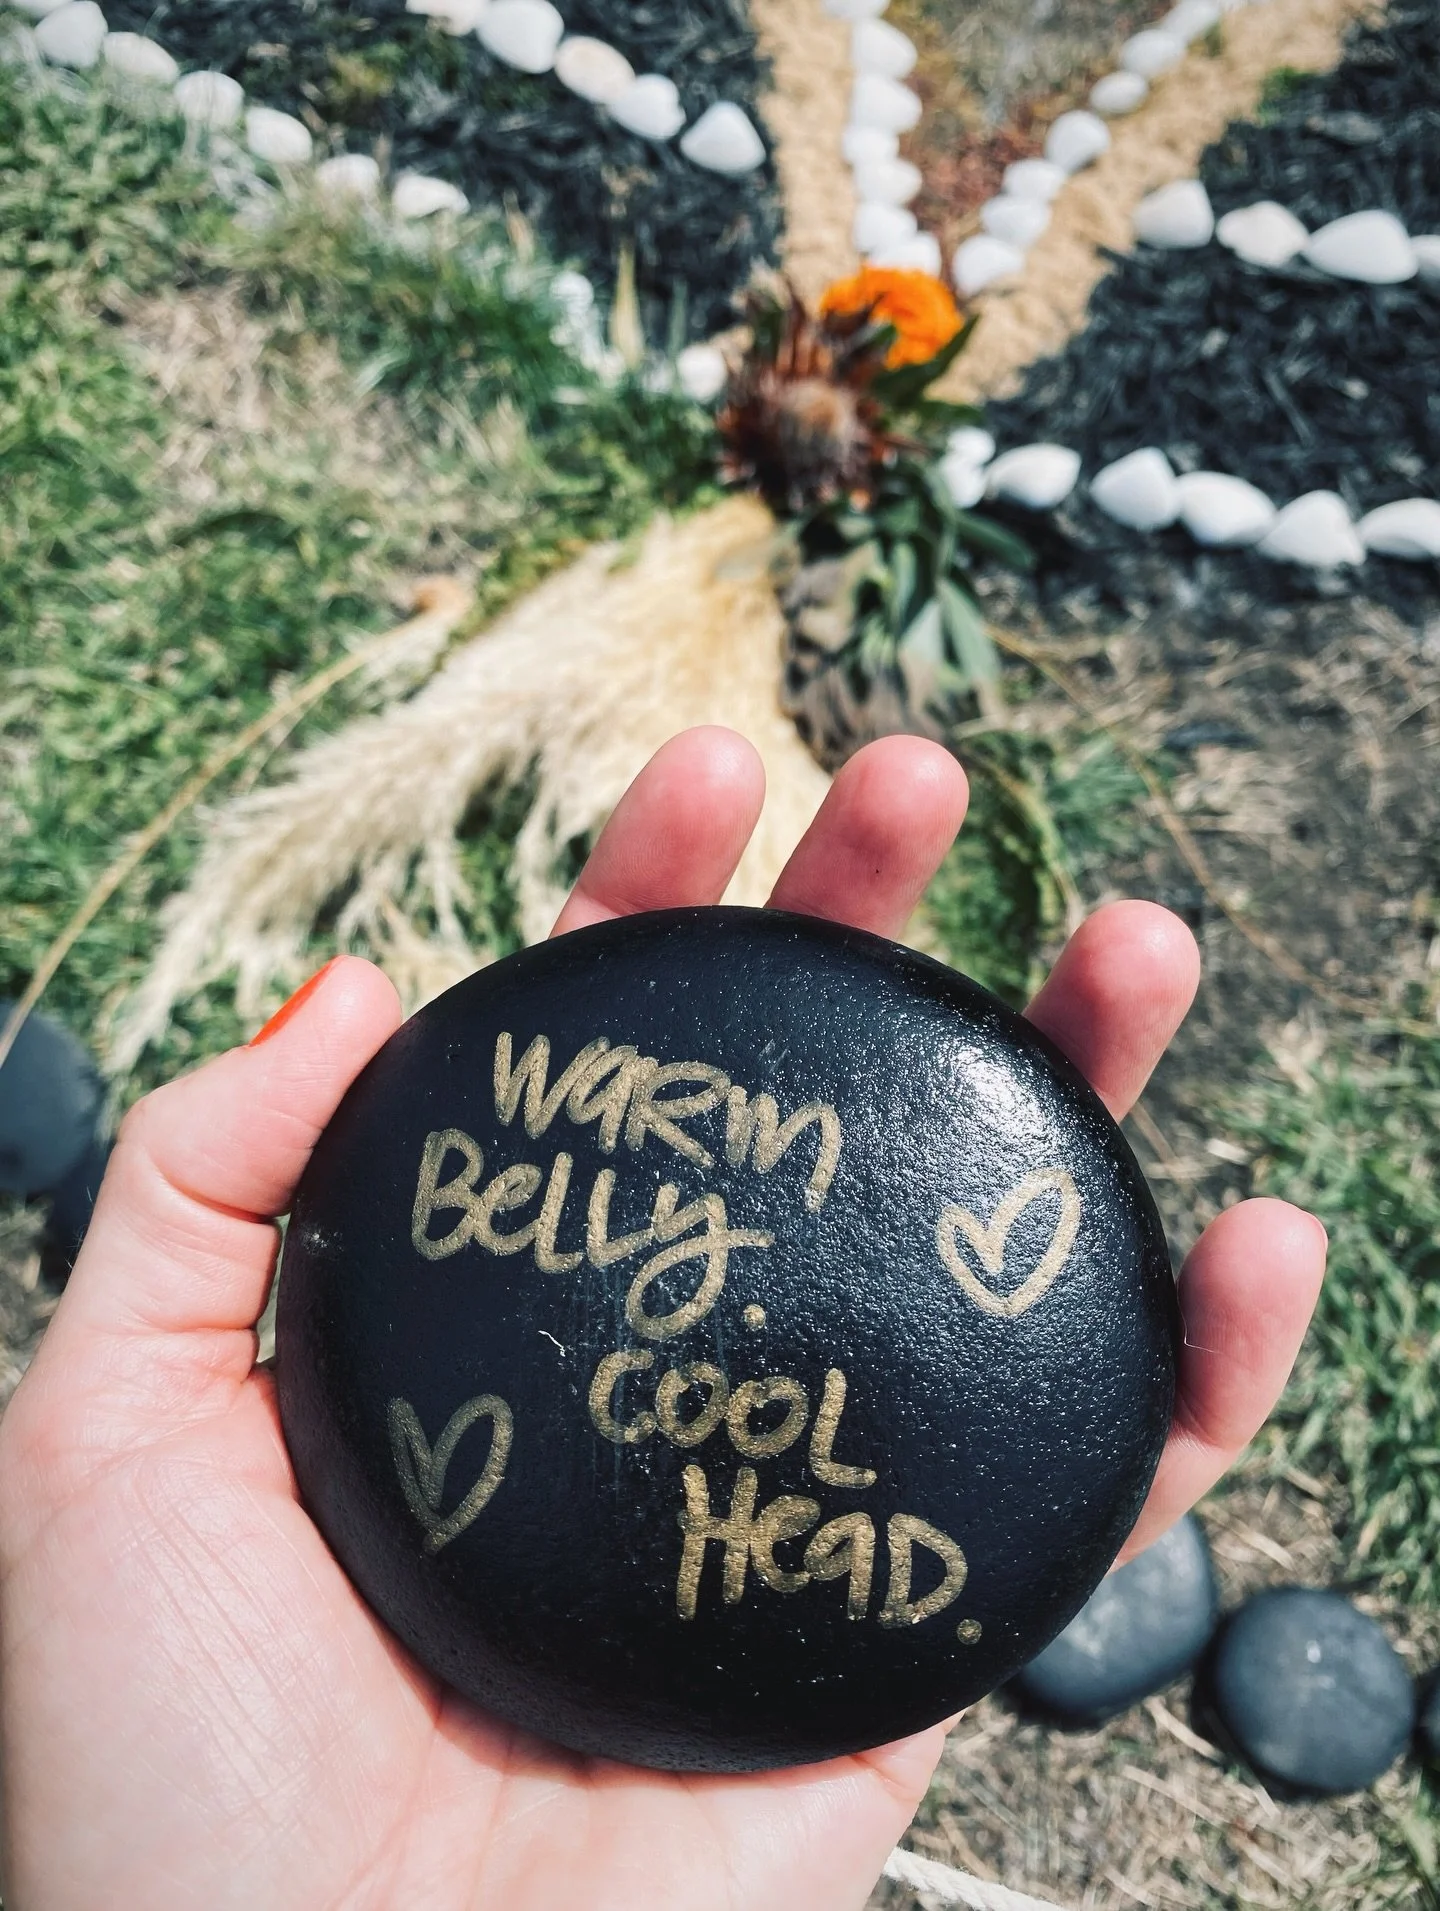 warm
Belly.
cool
Head.